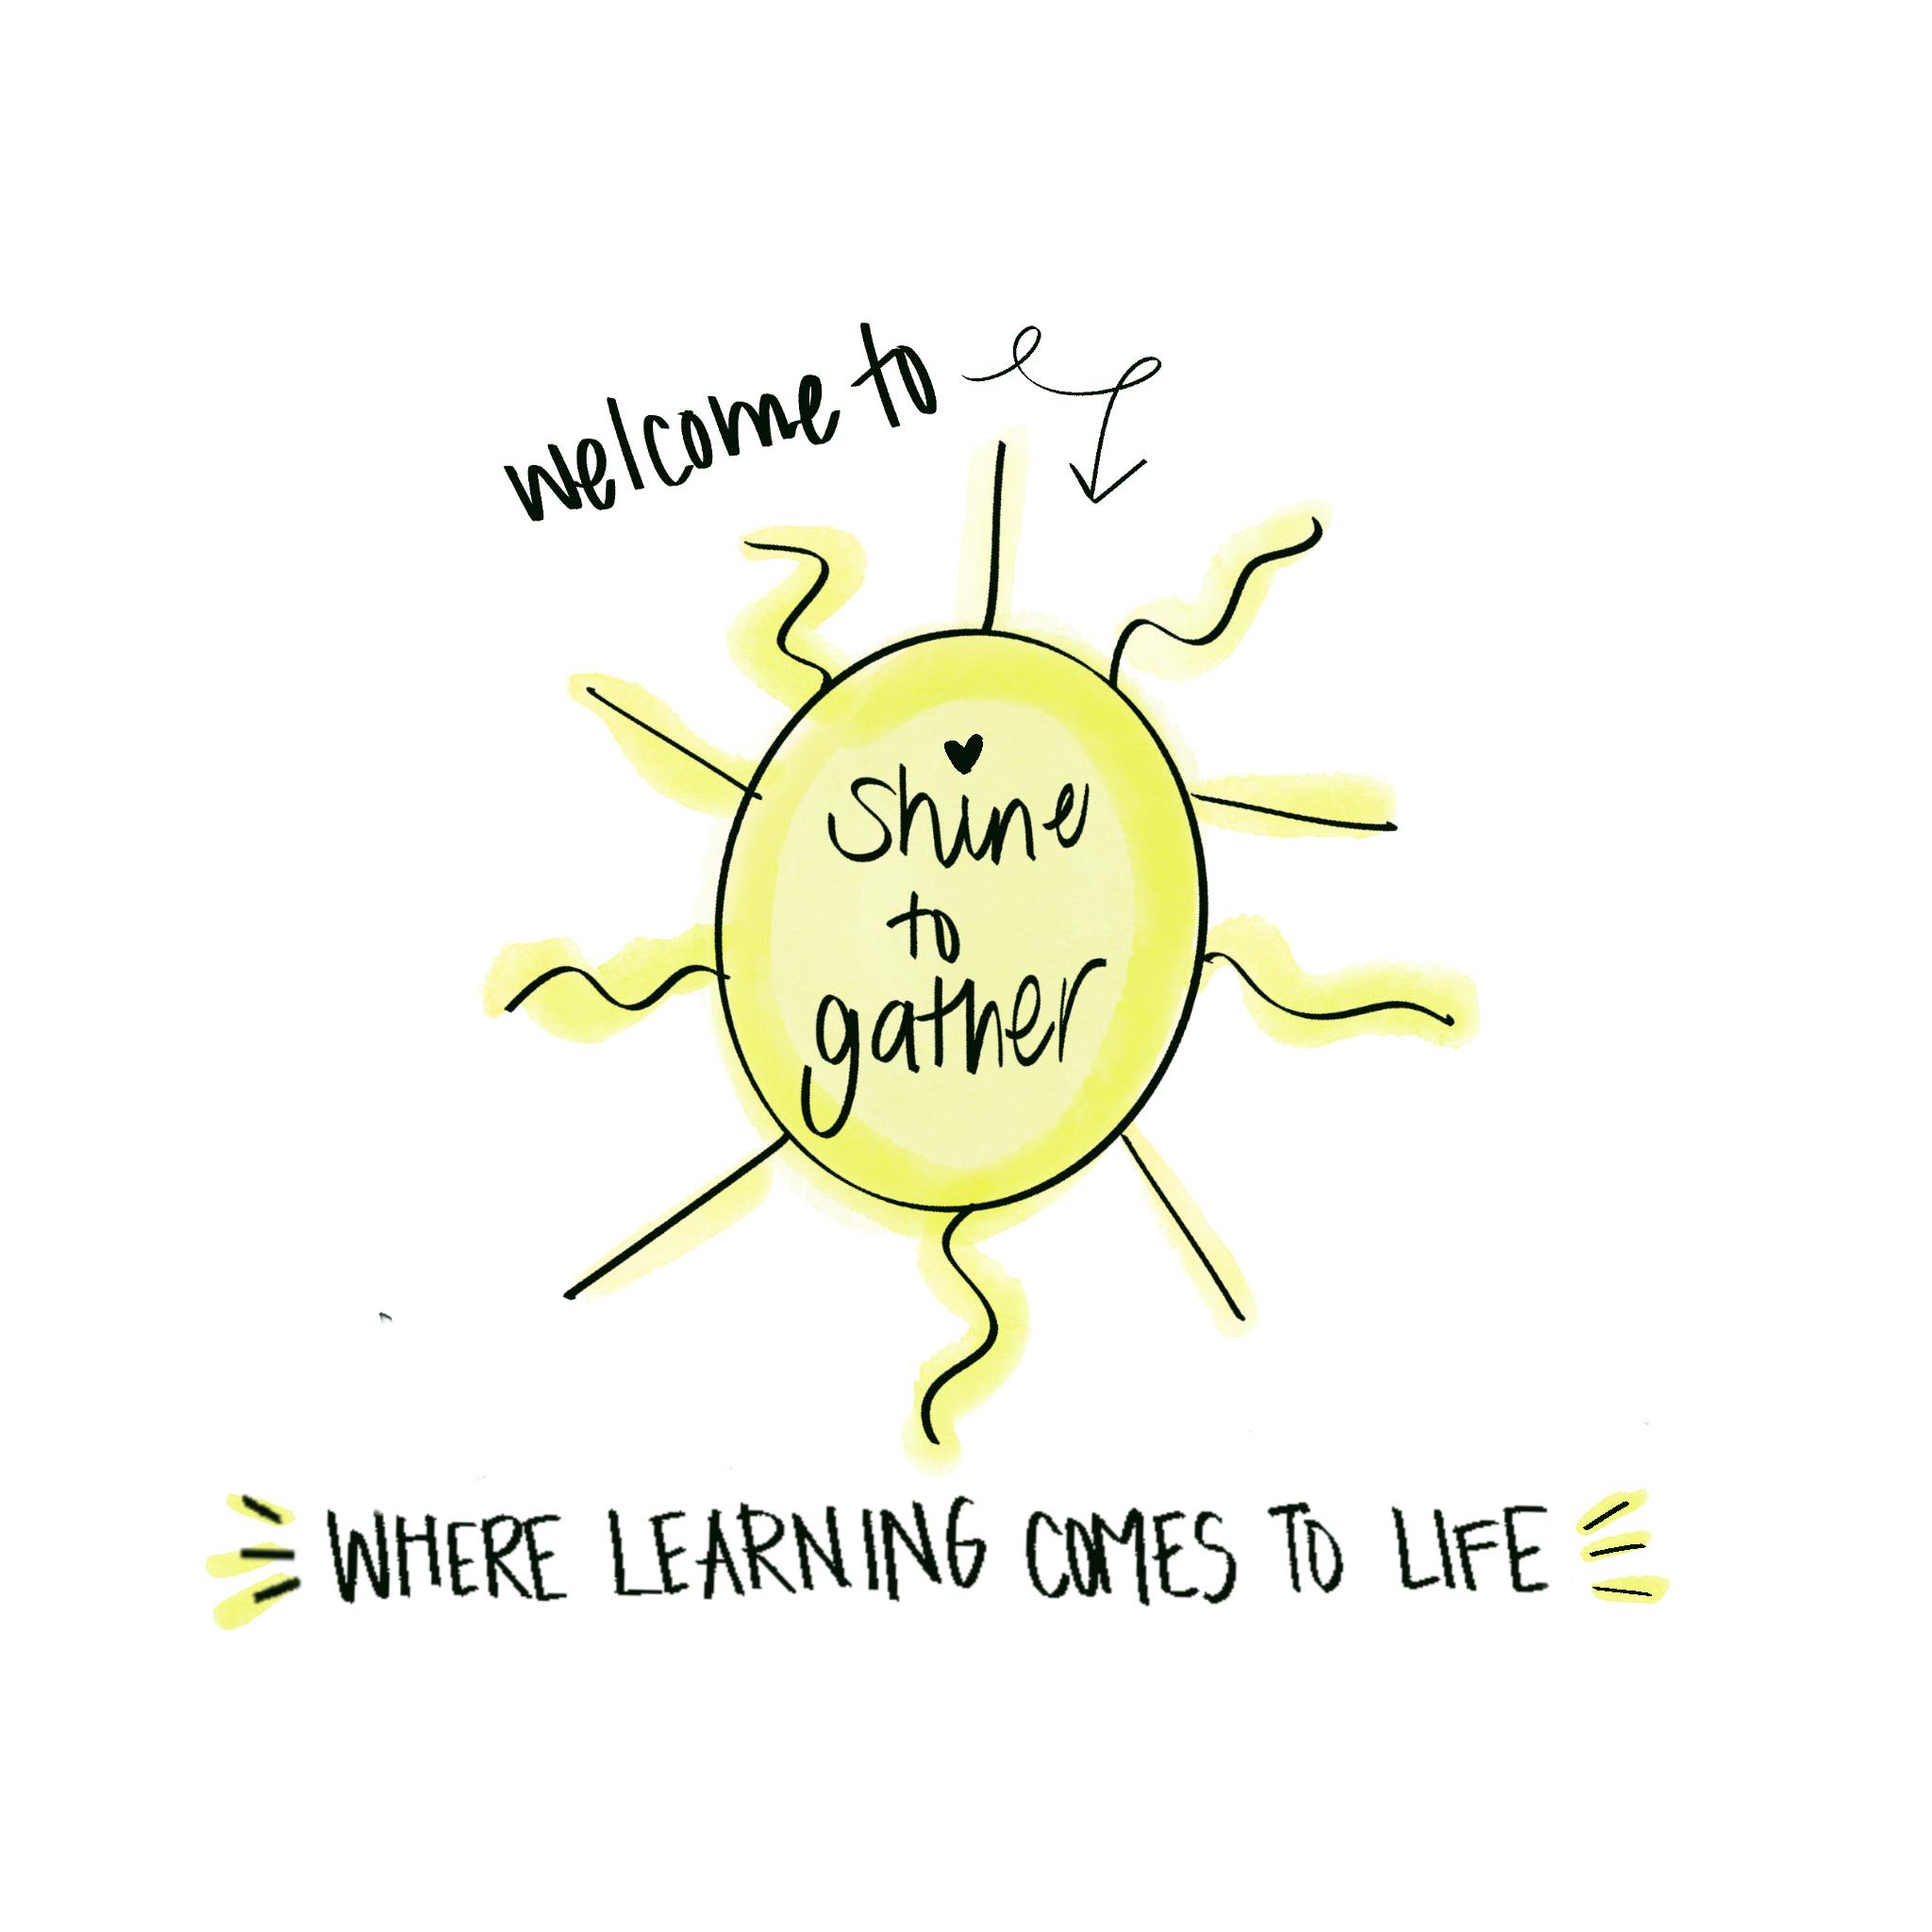 welcome to
shine
to
gather
WHERE LEARNING COMES TO LIFE